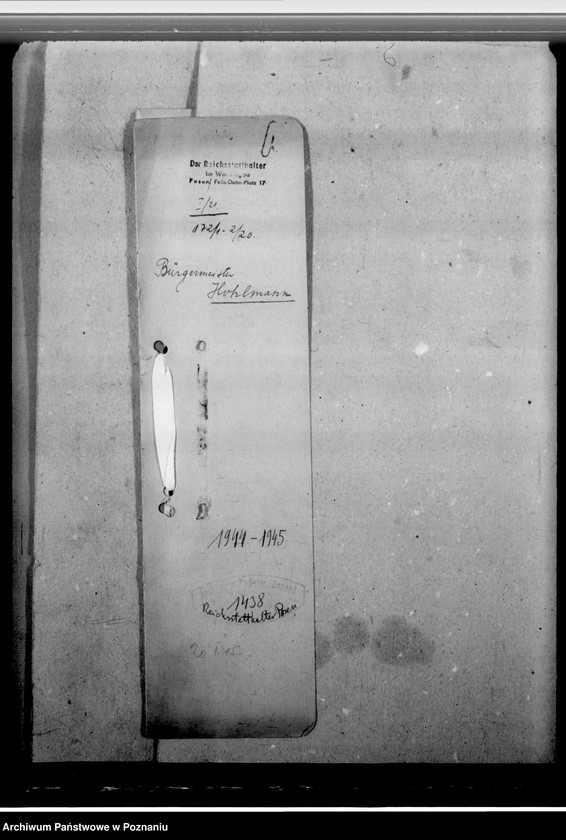 Der Reichsstatthalter
im Warthegau
Posen, Felix-Dahn-Platz 17
I/21
172/1-2/20.
Bürgermeister
Hohlmann
1944-1945
1438
Reichsstatthalter Posen
Archiwum Państwowe w Poznaniu